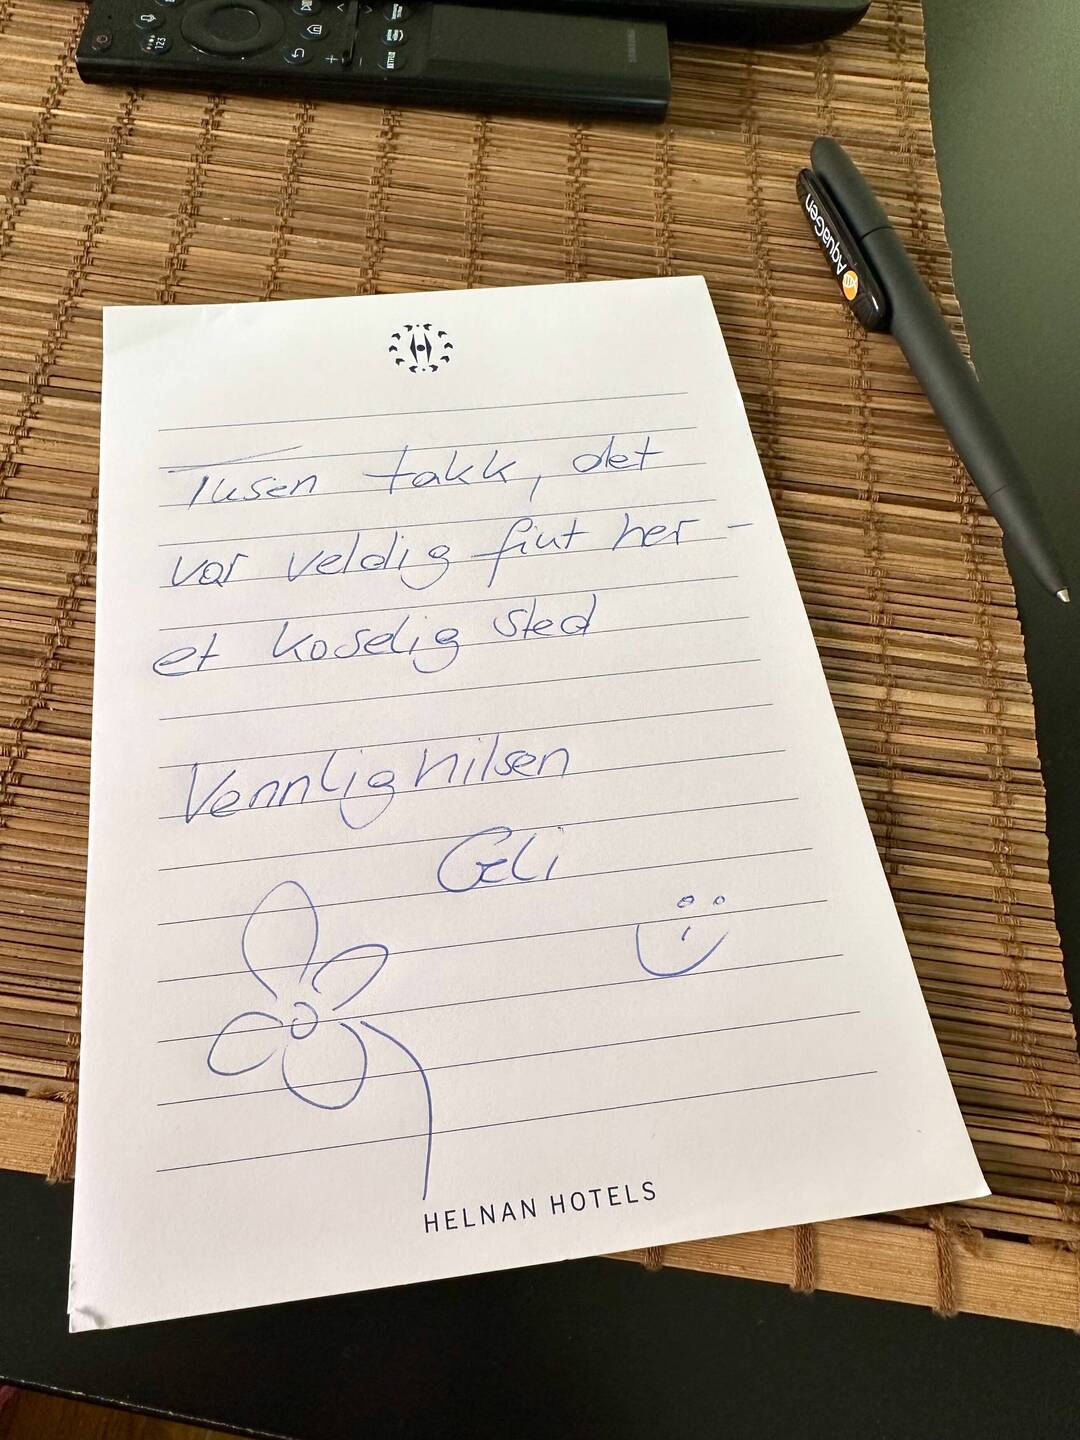 123
NETFLIX
SAMSUNG
AquaGen
Tusen takk, det
var veldig fint her -
et koselig sted
Vennlig hilsen
Geli
HELNAN HOTELS